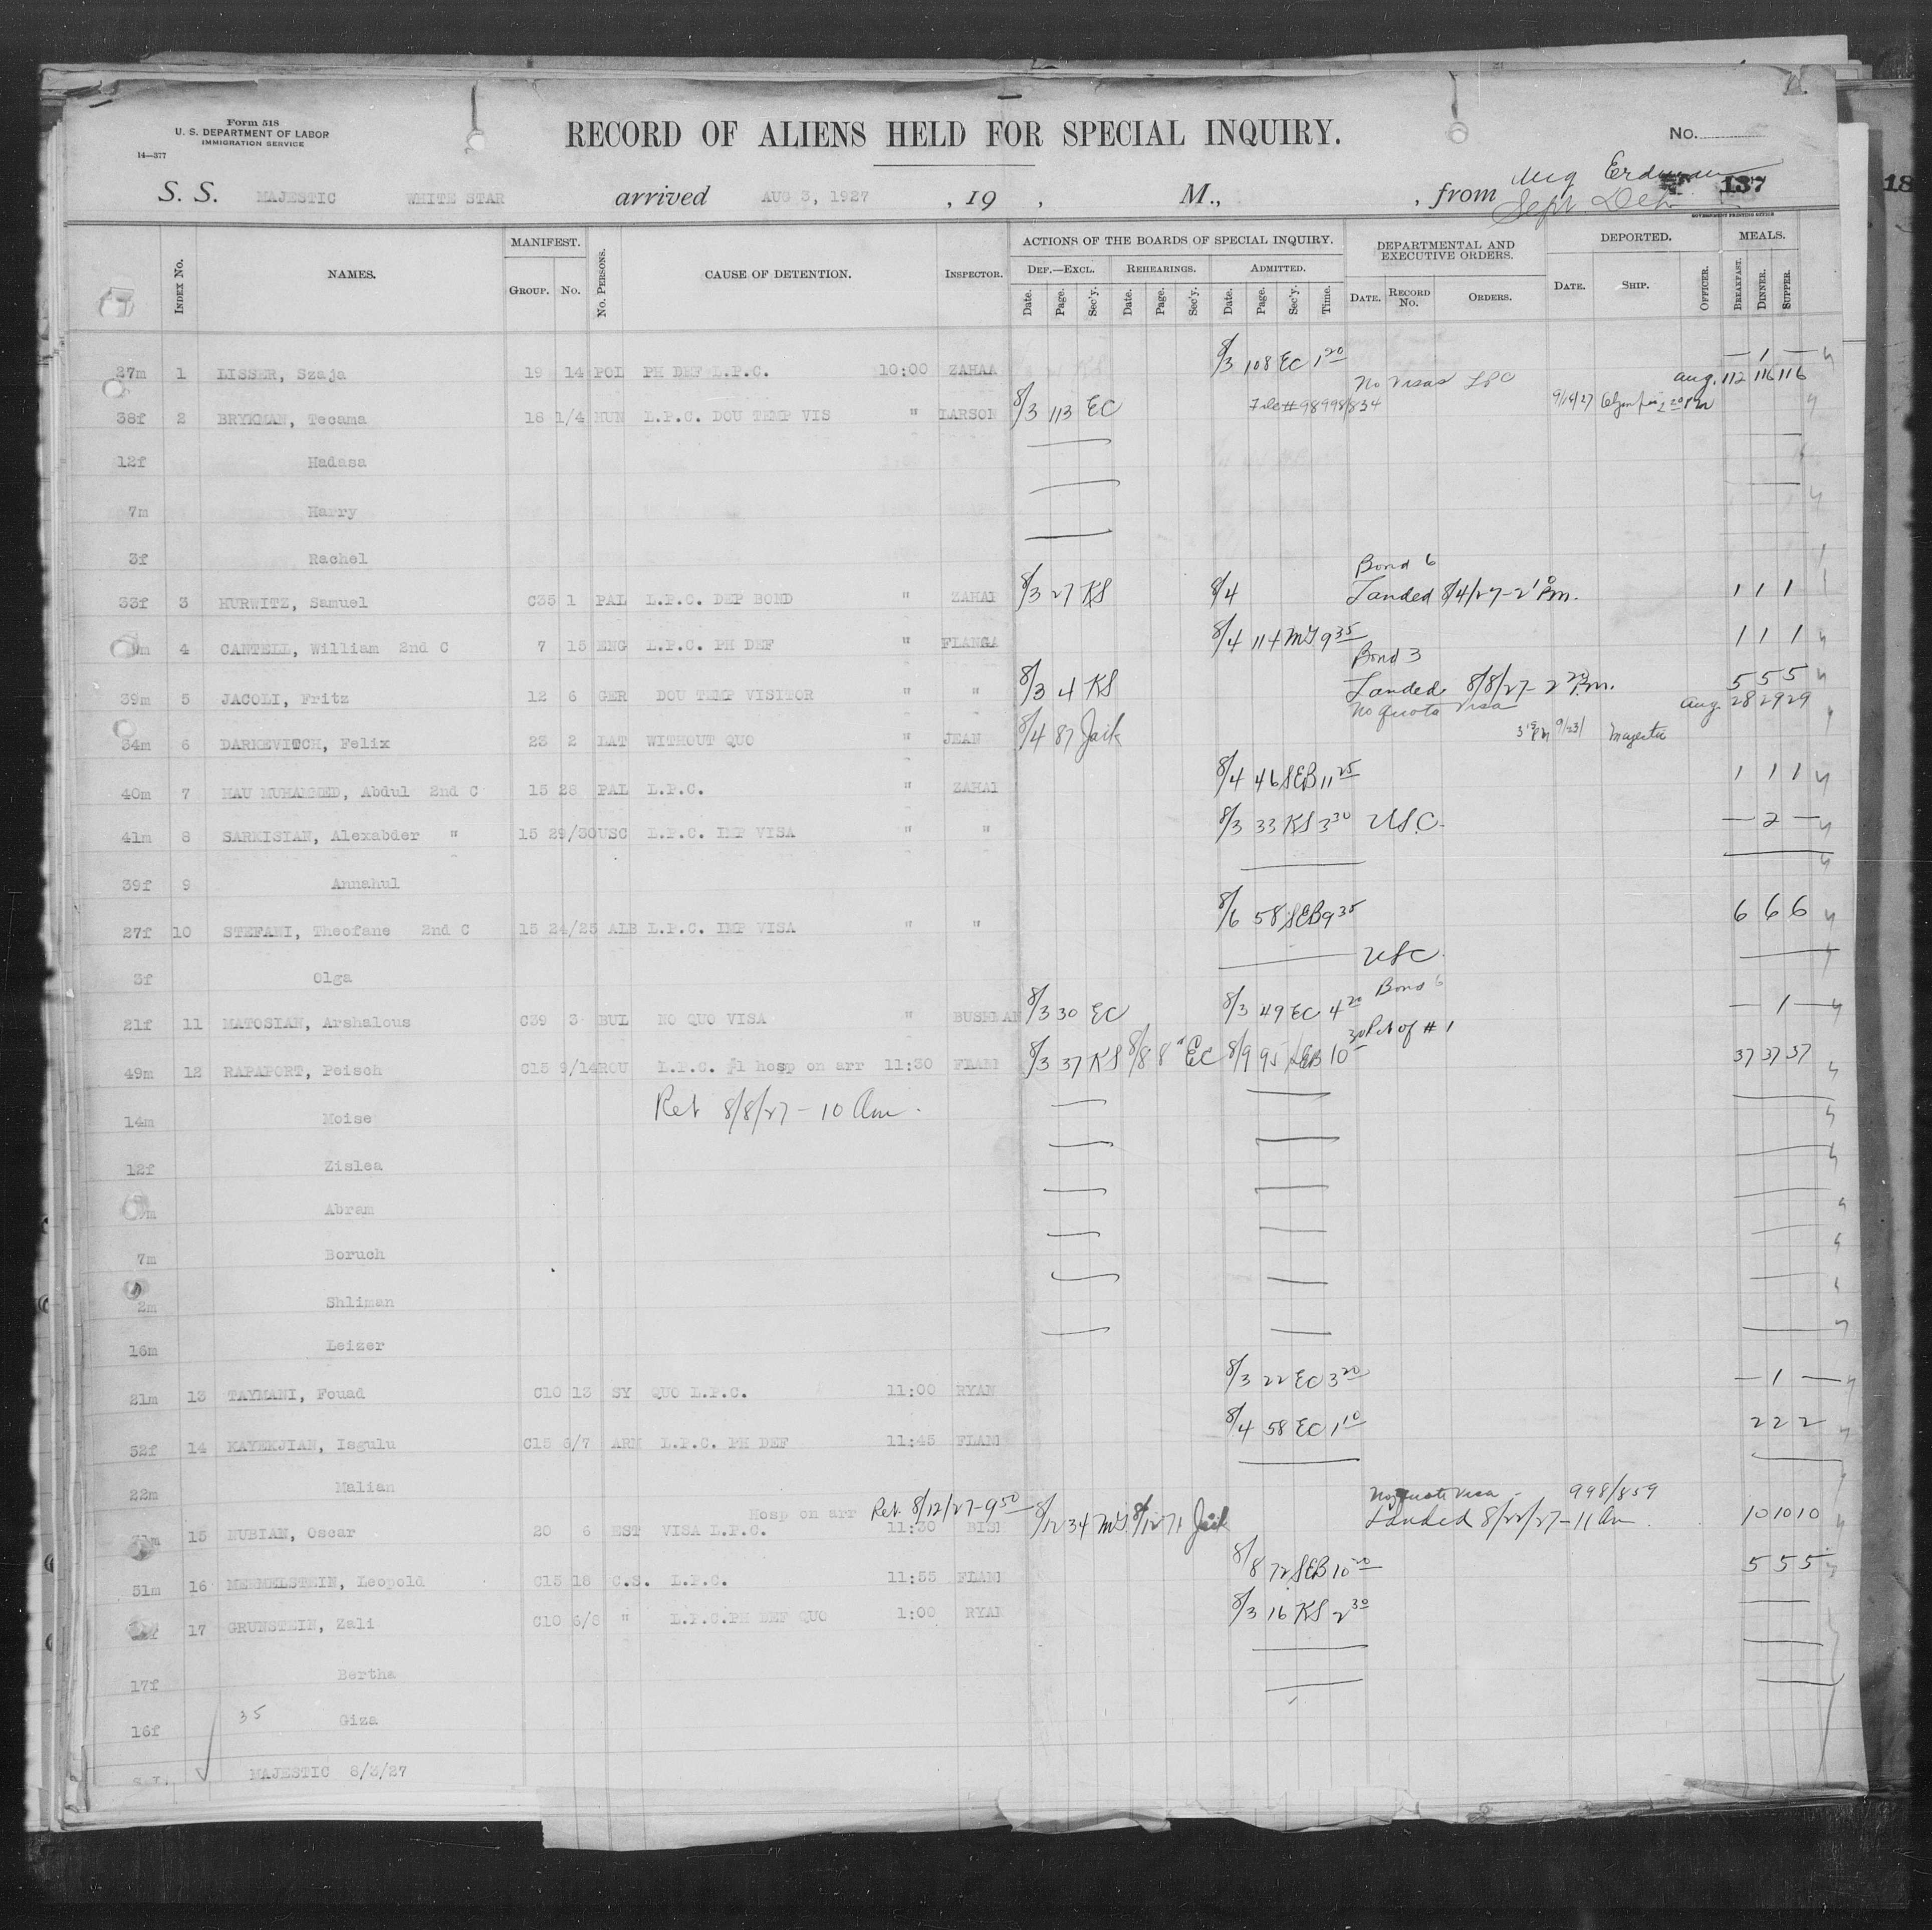 Form 518
U. S. DEPARTMENT OF LABOR
IMMIGRATION SERVICE
14—377
RECORD OF ALIENS HELD FOR SPECIAL INQUIRY.
No.
S. S. MAJESTIC WHITE STAR arrived AUG 3, 1927 , 19 , M., , from
137
18
GOVERNMENT PRINTING OFFICE
INDEX No. NAMES. MANIFEST. GROUP. No. No. PERSONS. CAUSE OF DETENTION. INSPECTOR. ACTIONS OF THE BOARDS OF SPECIAL INQUIRY. DEF.—EXCL. Date. Page. Sec'y. REHEARINGS. Date. Page. Sec'y. ADMITTED. Date. Page. Sec'y. Time. DEPARTMENTAL AND EXECUTIVE ORDERS. DATE. RECORD No. ORDERS. DEPORTED. DATE. SHIP. OFFICER. MEALS. BREAKFAST. DINNER. SUPPER.
27m 1 LISSER, Szaja 19 14 POL PH DEF L.P.C. 10:00 ZAHAA 8/3 108 EC 1 20 — 1 —
No Visas LPC Aug. 112 116 116
38f 2 BRYKMAN, Tecama 18 1/4 HUN L.P.C. DOU TEMP VIS " LARSON 8/3 113 EC File # 98998/834
12f Hadasa
7m Harry
3f Rachel
Bond 6
33f 3 HURWITZ, Samuel C35 1 PAL L.P.C. DEP BOND " ZAHAI 8/3 27 KS 8/4 Landed 8/4/27 - 2 10 Pm. 1 1 1
4 CANTELL, William 2nd C 7 15 ENG L.P.C. PH DEF " FLANGA 8/4 114 MG 9 35 1 1 1
Bond 3
39m 5 JACOLI, Fritz 12 6 GER DOU TEMP VISITOR " " 8/3 4 KS Landed 8/8/27 - 2 20 Pm. 5 5 5
No Quota Visa Aug. 28 29 29
34m 6 DARKEVITCH, Felix 23 2 LAT WITHOUT QUO " JEAN 8/4 87 Jack 9/23 Majestic
40m 7 MAU MUHAMMED, Abdul 2nd C 15 28 PAL L.P.C. " ZAHAI 8/4 46 SEB 11 25 1 1 1
41m 8 SARKISIAN, Alexabder " 15 29/30 USC L.P.C. IMP VISA " " 8/3 33 KS 3 30 USC. — 2 —
39f 9 Annahul
27f 10 STEFANI, Theofane 2nd C 15 24/25 ALB L.P.C. IMP VISA " " 8/6 58 SEB 9 35 6 6 6
3f Olga USC.
Bond
21f 11 MATOSIAN, Arshalous C39 3 BUL NO QUO VISA " BUSHMAN 8/3 30 EC 8/3 49 EC 4 20 — 1 —
49m 12 RAPAPORT, Peisch C15 9/14 ROU L.P.C. #1 hosp on arr 11:30 FLANN 8/3 37 KS 8/8 8 EC 8/9 95 SEB 10 37 37 37
Ret 8/8/27 - 10 Am.
14m Moise
12f Zislea
Abram
7m Boruch
2m Shliman
16m Leizer
21m 13 TAYMANI, Fouad C10 13 SY QUO L.P.C. 11:00 RYAN 8/3 22 EC 3 20 — 1 —
52f 14 KAYEKJIAN, Isgulu C15 6/7 ARM L.P.C. PH DEF 11:45 FLANN 8/4 58 EC 1 10 2 2 2
22m Malian
Hosp on arr Ret 8/12/27 - 9 50 No quota visa - 998/859
15 NUBIAN, Oscar 20 6 EST VISA L.P.C. 11:30 8/12 34 MG 8/12 71 Jack Landed 8/22/27 - 11 Am 10 10 10
51m 16 MERMELSTEIN, Leopold C15 18 C.S. L.P.C. 11:55 FLANN 8/8 72 SEB 10 20 5 5 5
17 GRUNSTEIN, Zali C10 6/8 " L.P.C.PH DEF QUO 1:00 RYAN 8/3 16 KS 2 30
17f Bertha
16f 35 Giza
S.I. MAJESTIC 8/3/27